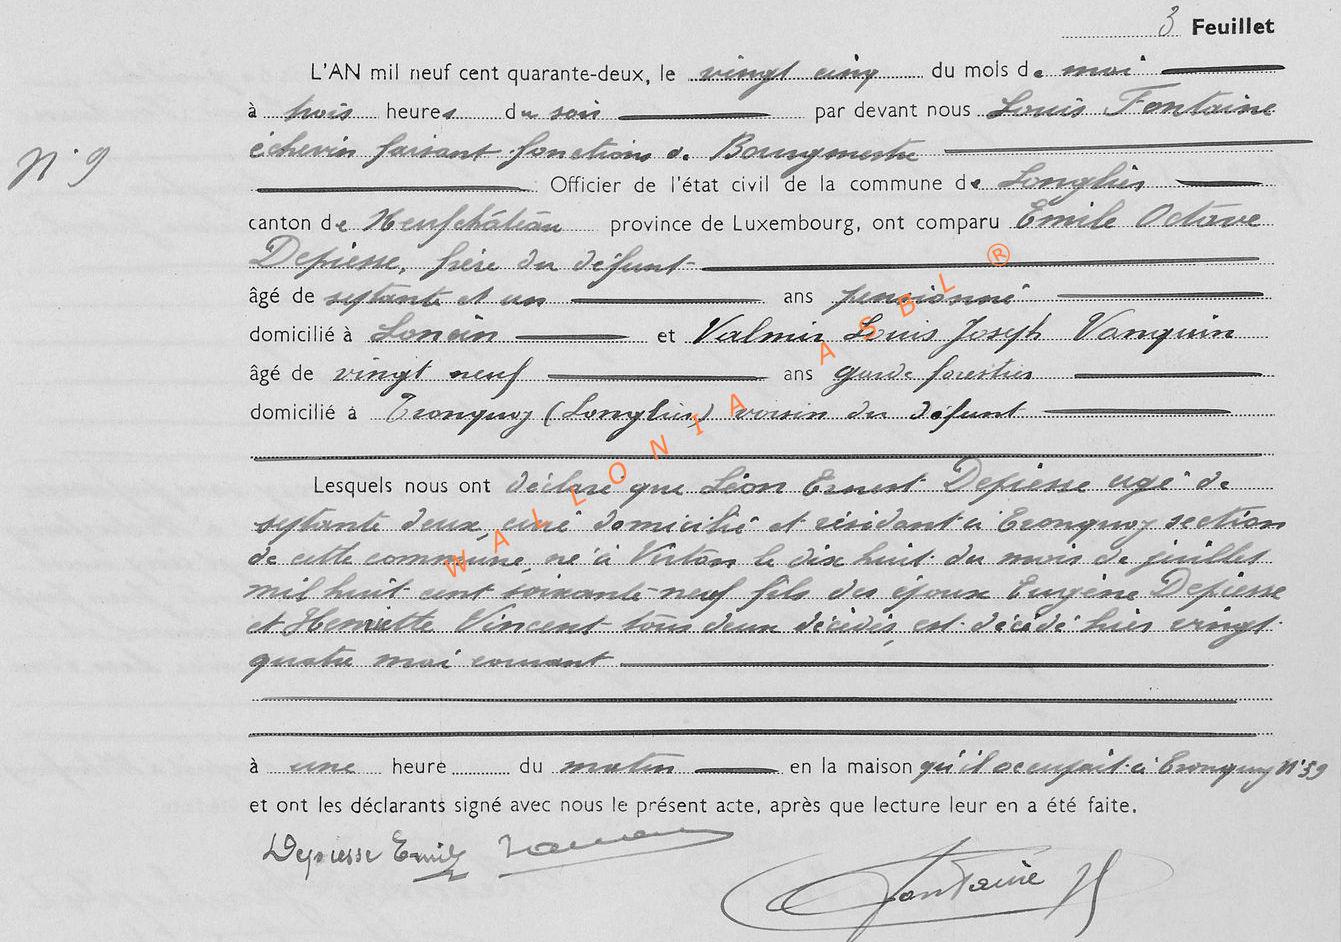 3 Feuillet
L'AN mil neuf cent quarante-deux, le vingt cinq du mois de mai
à trois heures du soir par devant nous Louis Fontaine
échevin faisant fonctions de Bourgmestre
N° 9
Officier de l'état civil de la commune de Longlier
canton de Neufchâteau province de Luxembourg, ont comparu Emile Octave
Depiesse, frère du défunt
âgé de septante et un ans pensionné
domicilié à Loncin et Valmir Louis Joseph Vanquin
âgé de vingt neuf ans garde forestier
domicilié à Tronquoy (Longlier) voisin du défunt
Lesquels nous ont déclaré que Léon Ernest Depiesse agé de
septante deux, curé domicilié et résidant à Tronquoy section
de cette commune, né à Virton le dix huit du mois de juillet
mil huit cent soixante-neuf fils des époux Eugène Depiesse
et Henriette Vincent tous deux décédés, est décédé hier vingt
quatre mai courant
à une heure du matin en la maison qu'il occupait à Tronquoy N° 59
et ont les déclarants signé avec nous le présent acte, après que lecture leur en a été faite.
Depiesse Emile
Fontaine
WALLONIA ASBL ®